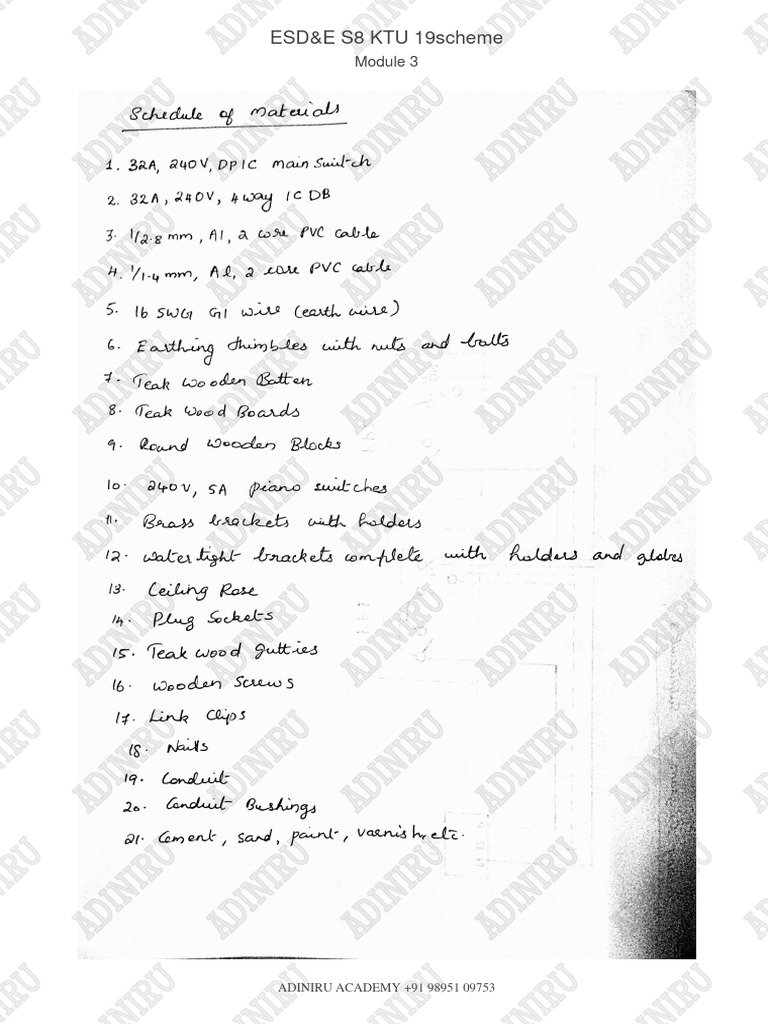 ESD&E S8 KTU 19scheme
Module 3
Schedule of Materials
1. 32A, 240V, DPIC Main Switch
2. 32A, 240V, 4 way IC DB
3. 1/2.8 mm, Al, 2 core PVC cable
4. 1/1.4 mm, Al, 2 core PVC cable
5. 16 SWG GI wire (earth wire)
6. Earthing thimbles with nuts and bolts
7. Teak Wooden Batten
8. Teak Wood Boards
9. Round Wooden Blocks
10. 240V, 5A piano switches
11. Brass brackets with holders
12. Water tight brackets complete with holders and globes
13. Ceiling Rose
14. Plug Sockets
15. Teak wood gutties
16. Wooden Screws
17. Link Clips
18. Nails
19. Conduit
20. Conduit Bushings
21. Cement, sand, paint, varnish, etc.
ADINIRU
ADINIRU ACADEMY +91 98951 09753